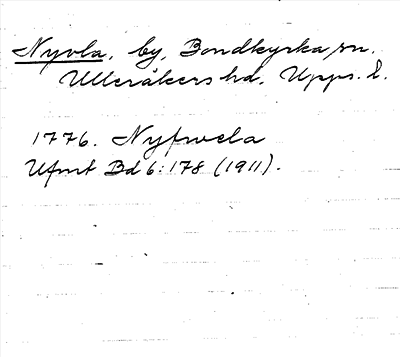 Nyvla, by, Bondkyrka sn.
Ulleråkers hd. Upps. l.
1776. Nyfwela
Ufmt Bd 6:178 (1911).